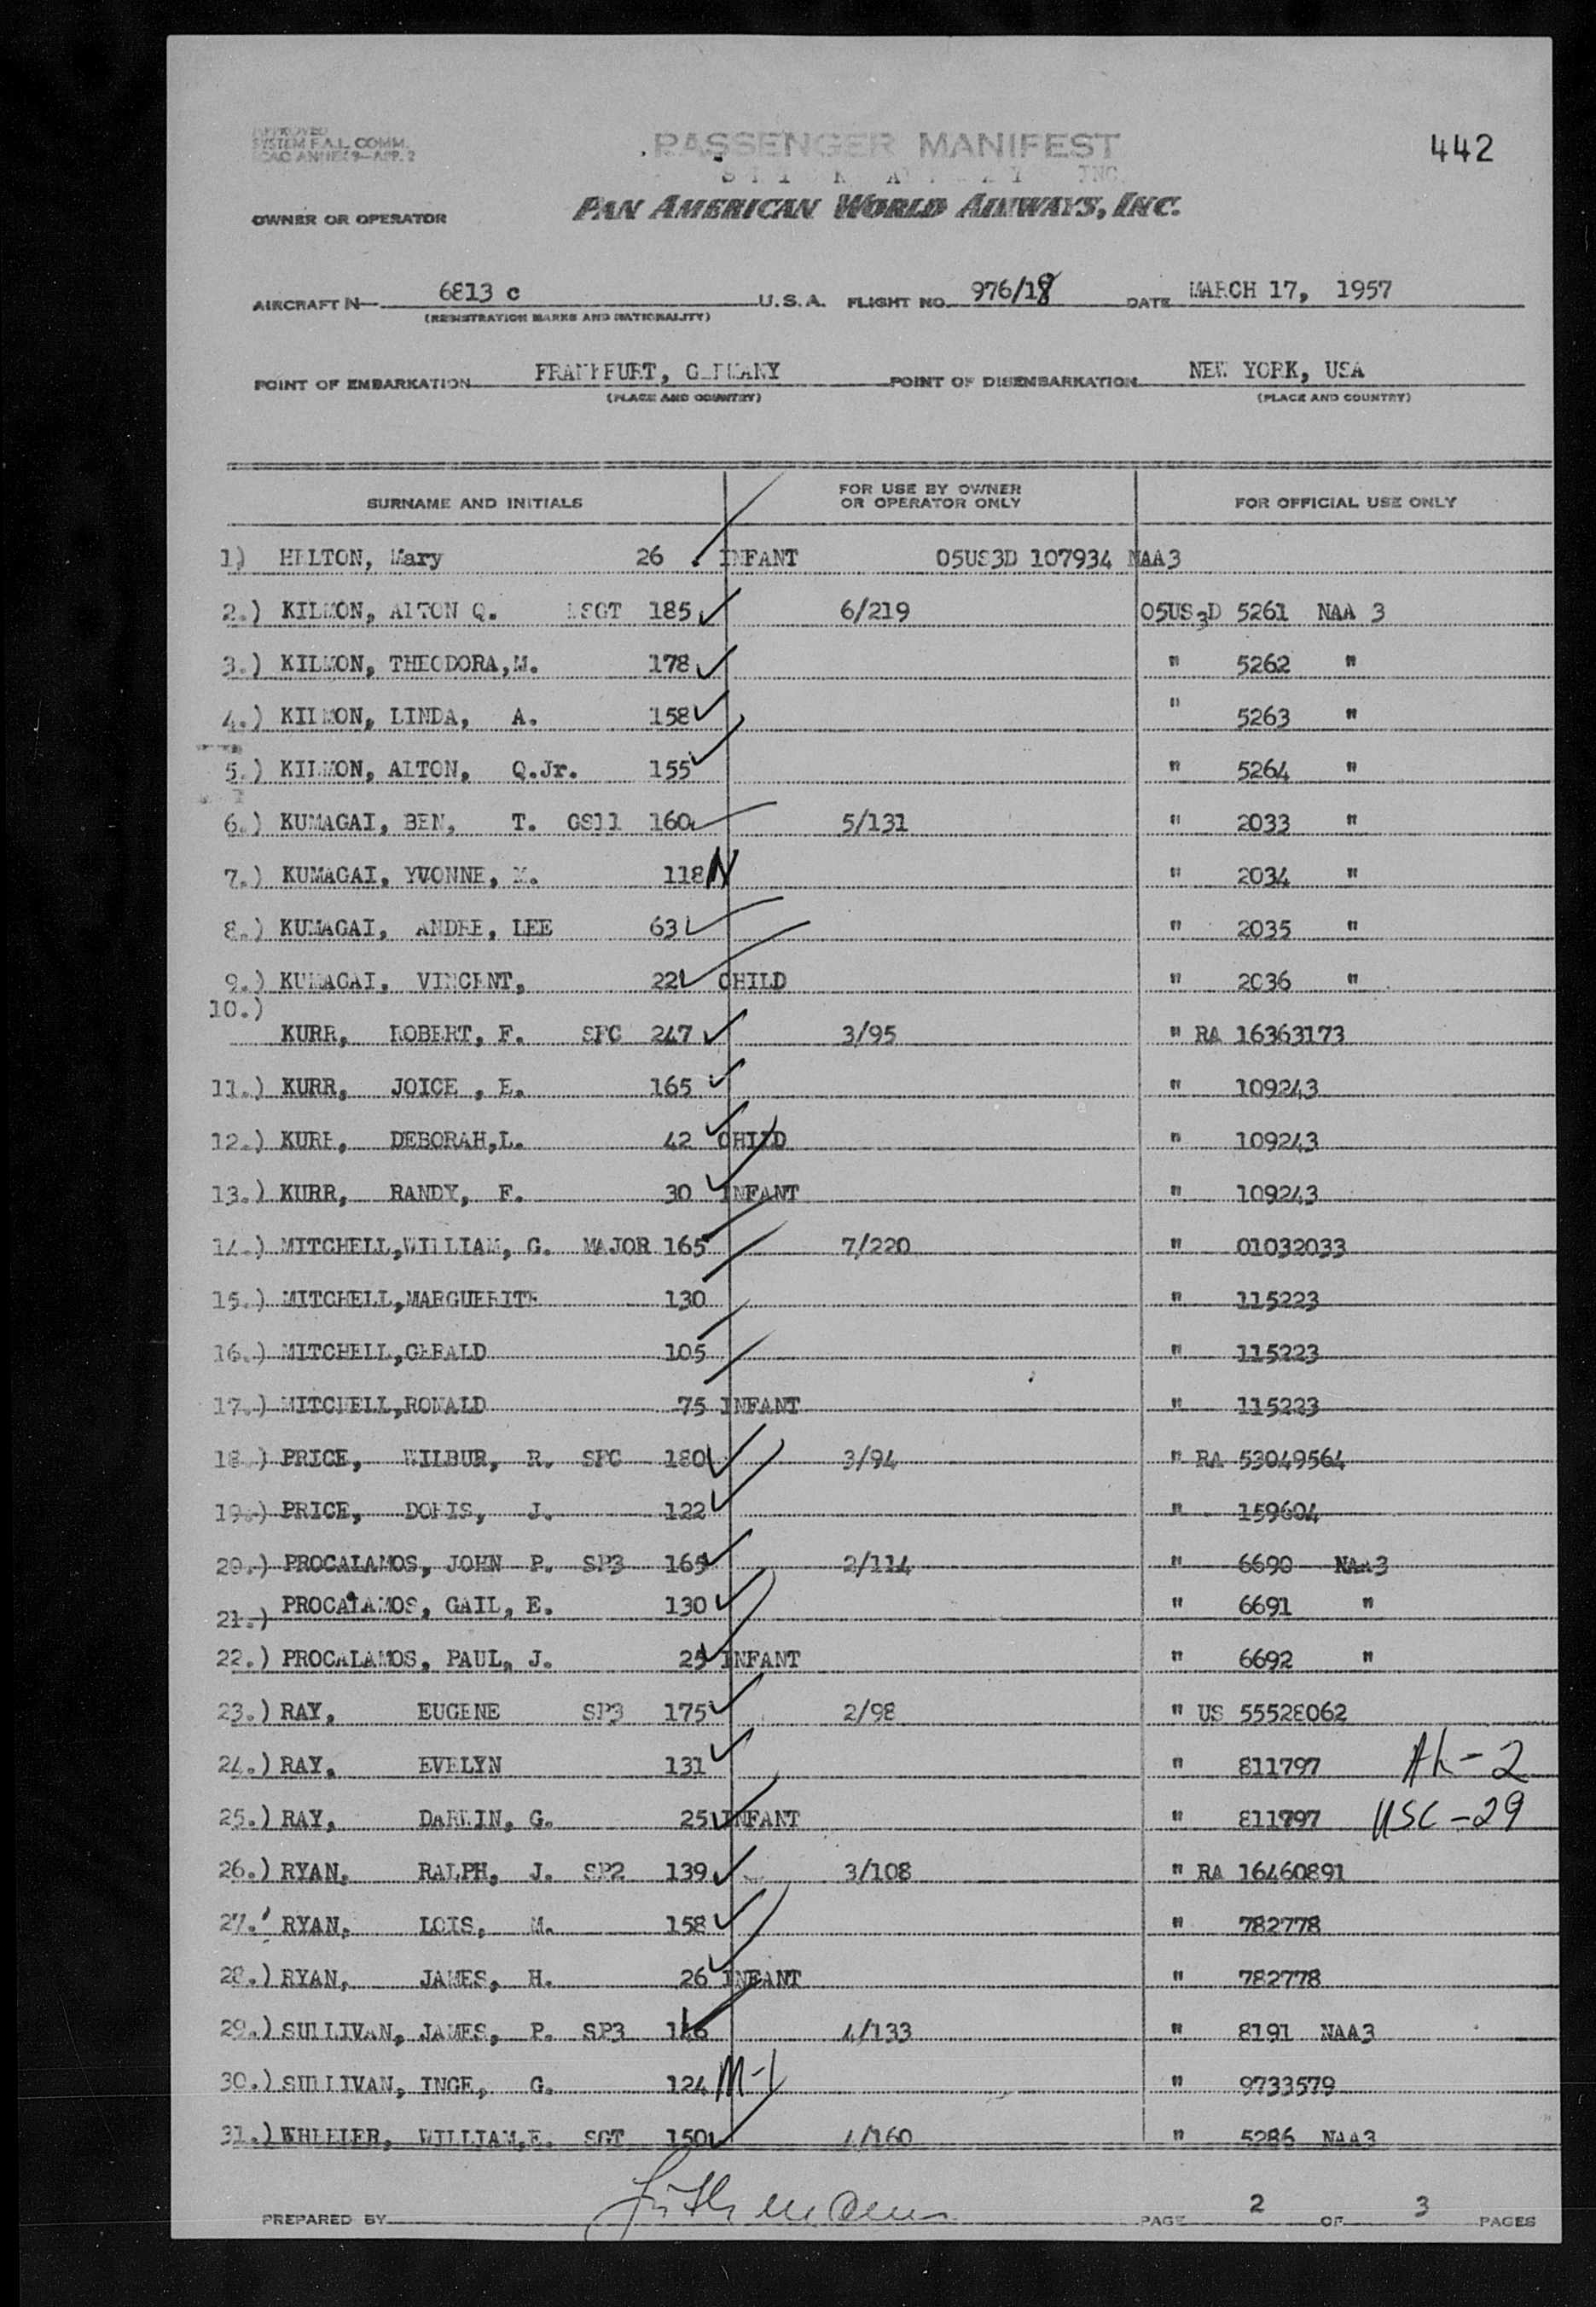 APPROVED
SYSTEM F.A.L. COMM.
ICAO ANNEX 9—APP. 2
PASSENGER MANIFEST
442
INC.
OWNER OR OPERATOR
PAN AMERICAN WORLD AIRWAYS, INC.
AIRCRAFT N— 6813 c U.S.A. FLIGHT NO. 976/18 DATE MARCH 17, 1957
(REGISTRATION MARKS AND NATIONALITY)
POINT OF EMBARKATION FRANKFURT, GERMANY POINT OF DISEMBARKATION NEW YORK, USA
(PLACE AND COUNTRY) (PLACE AND COUNTRY)
SURNAME AND INITIALS FOR USE BY OWNER OR OPERATOR ONLY FOR OFFICIAL USE ONLY
1) HELTON, Mary 26 INFANT 05US3D 107934 NAA3
2.) KILMON, ALTON Q. MSGT 185 6/219 05US3D 5261 NAA 3
3.) KILMON, THEODORA,M. 178 " 5262 "
4.) KILMON, LINDA, A. 158 " 5263 "
5.) KILMON, ALTON, Q.Jr. 155 " 5264 "
6.) KUMAGAI, BEN, T. GS11 160 5/131 " 2033 "
7.) KUMAGAI, YVONNE, 118 N " 2034 "
8.) KUMAGAI, ANDRE, LEE 63 " 2035 "
9.) KUMAGAI, VINCENT, 22 CHILD " 2036 "
10.) KURR, ROBERT, F. SFC 247 3/95 " RA 16363173
11.) KURR, JOICE , E. 165 " 109243
12.) KURR, DEBORAH,L. 42 CHILD " 109243
13.) KURR, RANDY, F. 30 INFANT " 109243
14.) MITCHELL,WILLIAM, G. MAJOR 165 7/220 " 01032033
15.) MITCHELL,MARGUERITE 130 " 115223
16.) MITCHELL,GERALD 105 " 115223
17.) MITCHELL,RONALD 75 INFANT " 115223
18.) PRICE, WILBUR, R. SFC 180 3/94 " RA 53049564
19.) PRICE, DORIS, J. 122 " 159604
20.) PROCALAMOS, JOHN P. SP3 165 2/114 " 6690 NAA3
21.) PROCALAMOS, GAIL, E. 130 " 6691 "
22.) PROCALAMOS, PAUL, J. 25 INFANT " 6692 "
23.) RAY, EUGENE SP3 175 2/98 " US 55528062
24.) RAY, EVELYN 131 " 811797 Ah-2
25.) RAY, DARWIN, G. 25 INFANT " 811797 USC-29
26.) RYAN, RALPH, J. SP2 139 3/108 " RA 16460891
27. RYAN, LOIS, M. 158 " 782778
28.) RYAN, JAMES, H. 26 INFANT " 782778
29.) SULLIVAN, JAMES, P. SP3 146 4/133 " 8191 NAA3
30.) SULLIVAN, INGE, G. 124 M-1 " 9733579
31.) WHEELER, WILLIAM,E. SGT 150 4/160 " 5286 NAA3
PREPARED BY PAGE 2 OF 3 PAGES